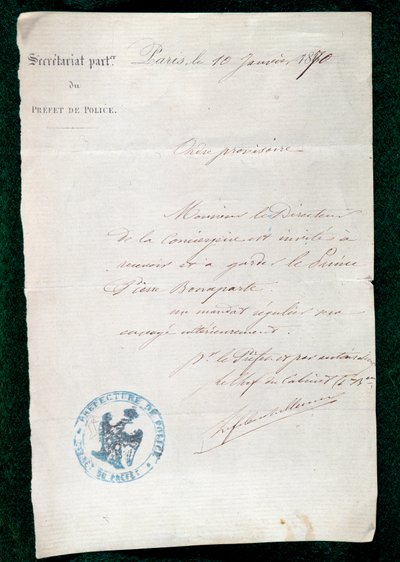 Secrétariat part.er
du
PRÉFET DE POLICE.
Paris, le 10 Janvier 1870
Ordre provisoire
Monsieur le Directeur
de la Conciergerie est invité à
recevoir et à garder le Prince
Pierre Bonaparte.
un mandat régulier sera
envoyé ultérieurement.
pr. le Préfet et par autorisation
Le chef du Cabinet
PRÉFECTURE DE POLICE
CABINET DU PRÉFET